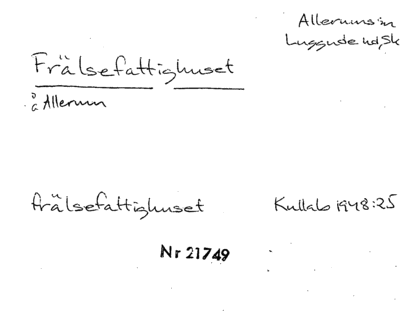 Allerums sn
Luggude hd, Sk
Frälsefattighuset
å Allerum
frälsefattighuset
Kullab 1948:25
Nr 21749